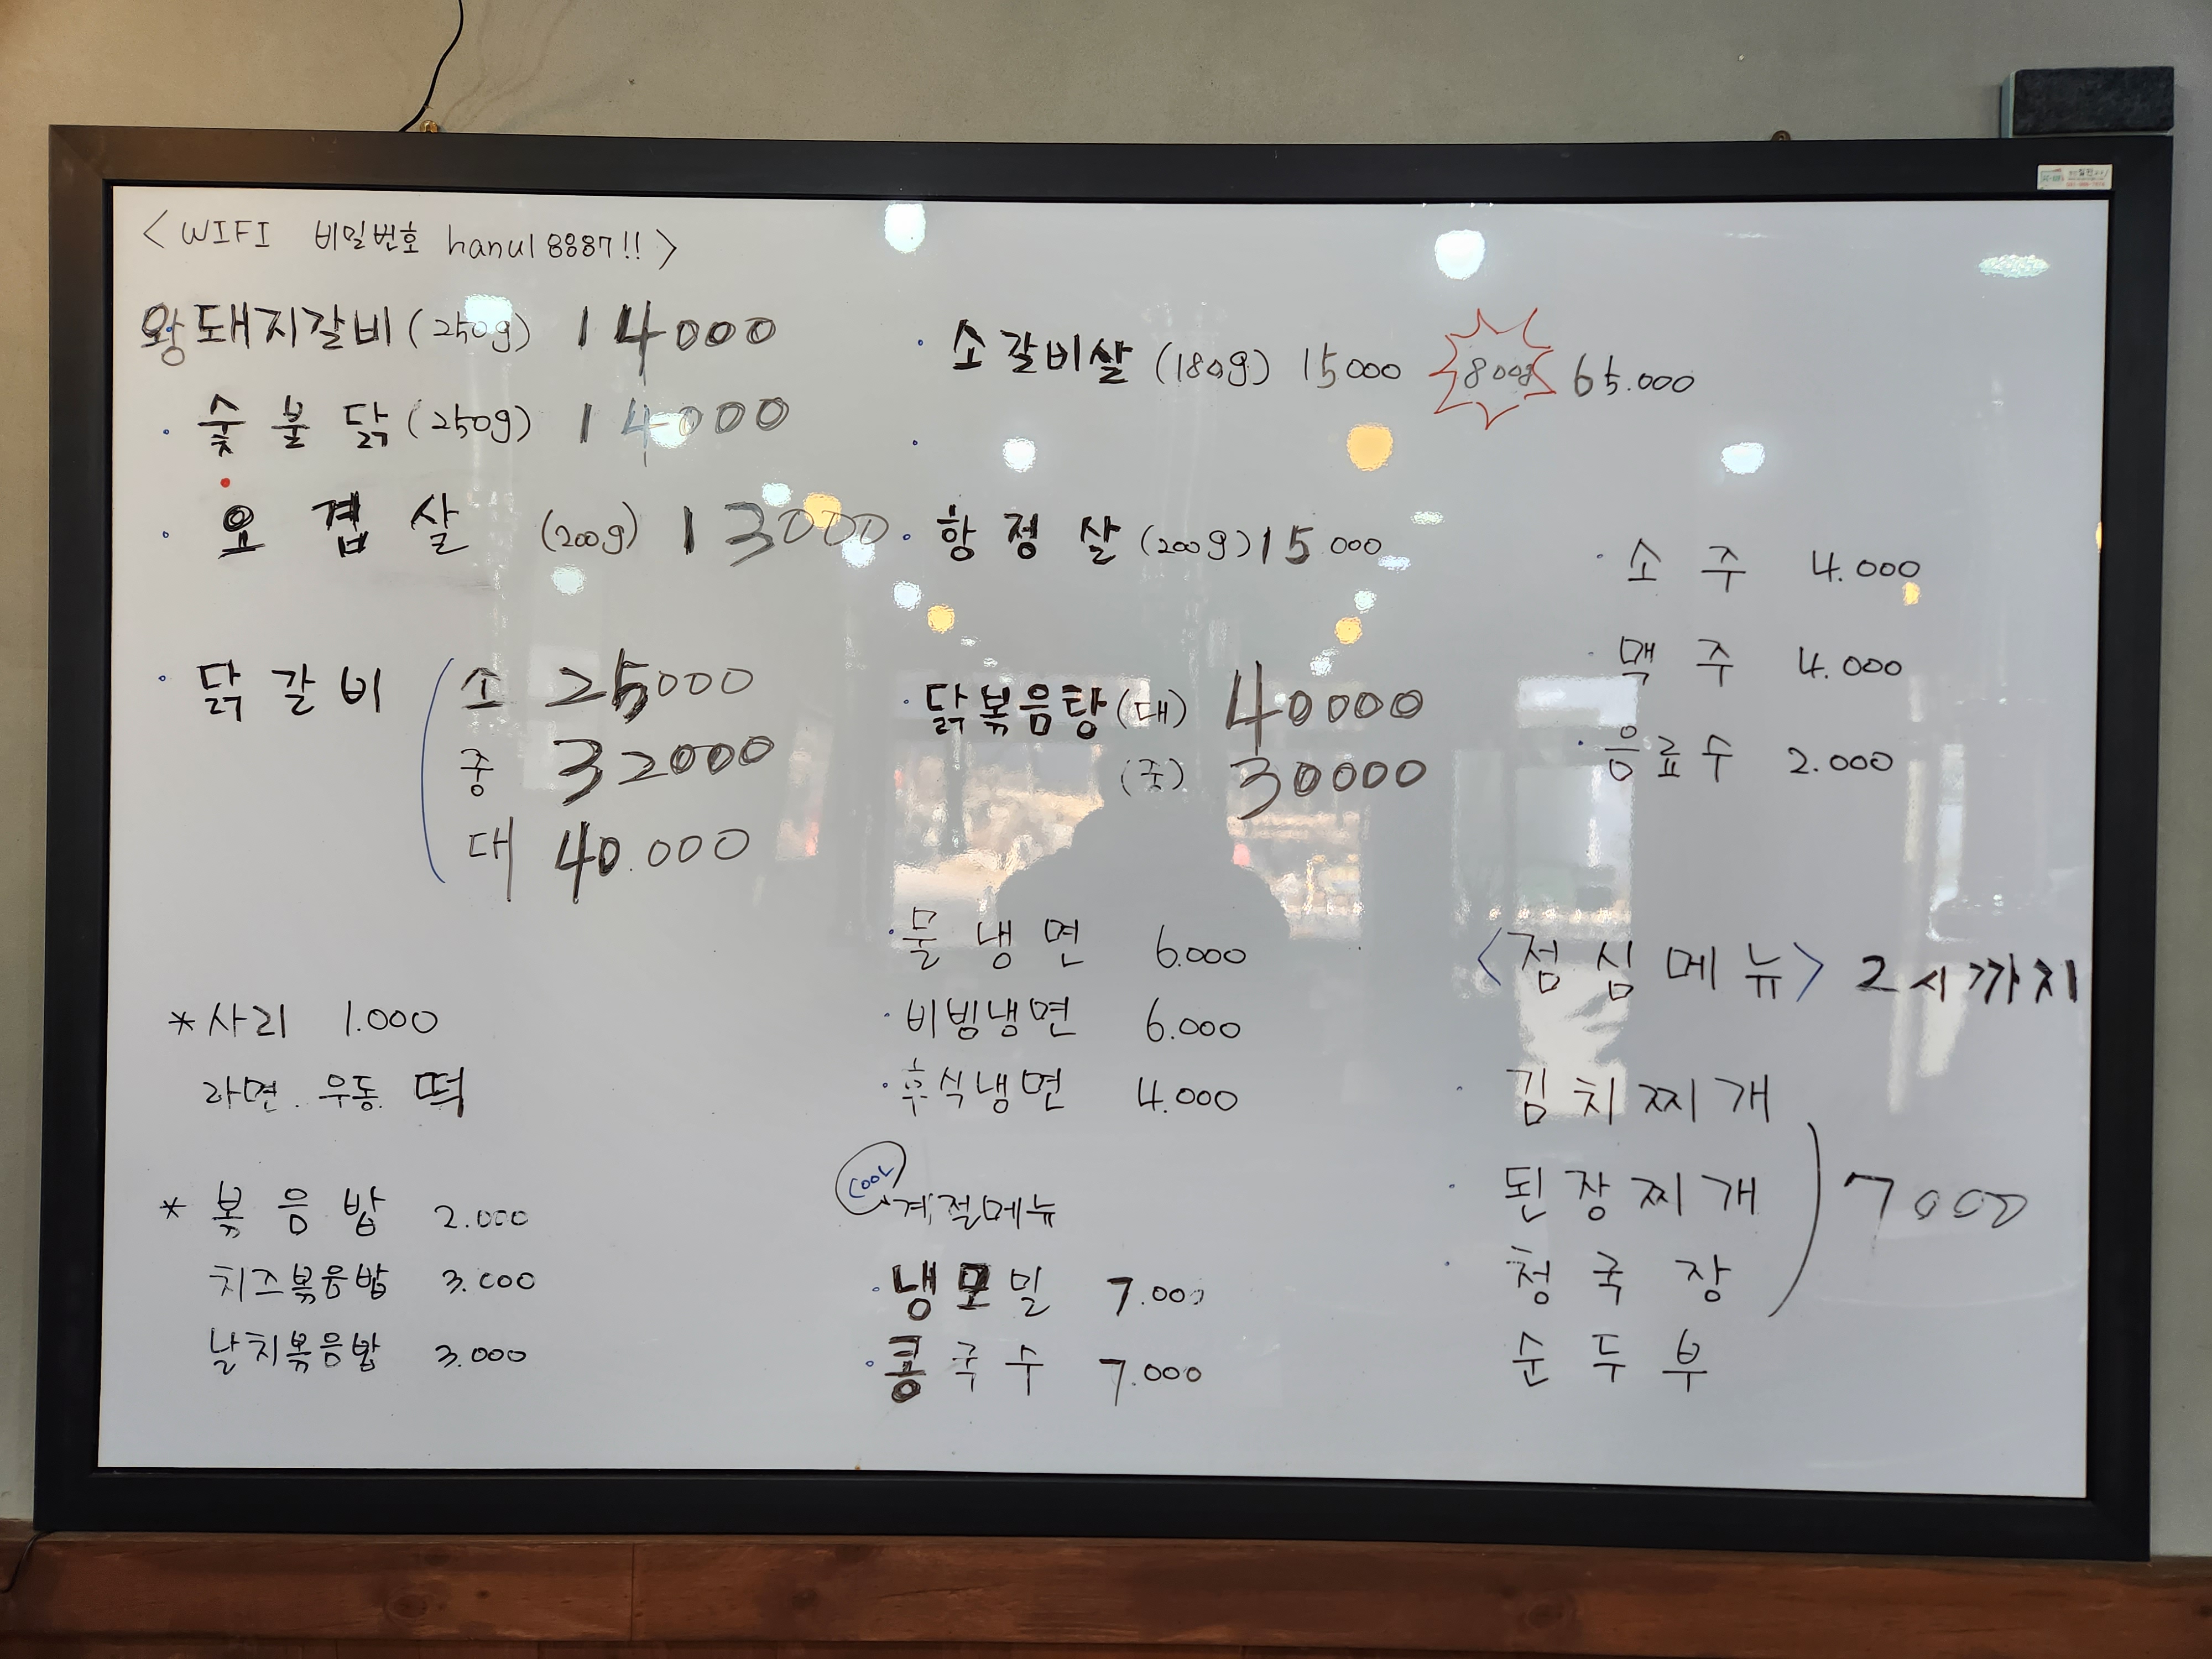 <WIFI 비밀번호 hanul8887!!>
왕돼지갈비(250g) 14000
· 숯불닭(250g) 14000
· 오겹살 (200g) 13000
· 닭갈비 ( 소 25000
중 32000
대 40.000
* 사리 1.000
라면. 우동. 떡
* 볶음밥 2.000
치즈볶음밥 3.000
날치볶음밥 3.000
· 소갈비살 (180g) 15000 800g 65.000
· 항정살 (200g) 15000
· 닭볶음탕(대) 40000
(중) 30000
· 물냉면 6.000
· 비빔냉면 6.000
· 후식냉면 4.000
COOL 계절메뉴
· 냉모밀 7.000
· 콩국수 7.000
· 소주 4.000
· 맥주 4.000
· 음료수 2.000
<점심메뉴> 2시까지
· 김치찌개
· 된장찌개 ) 7000
· 청국장
순두부